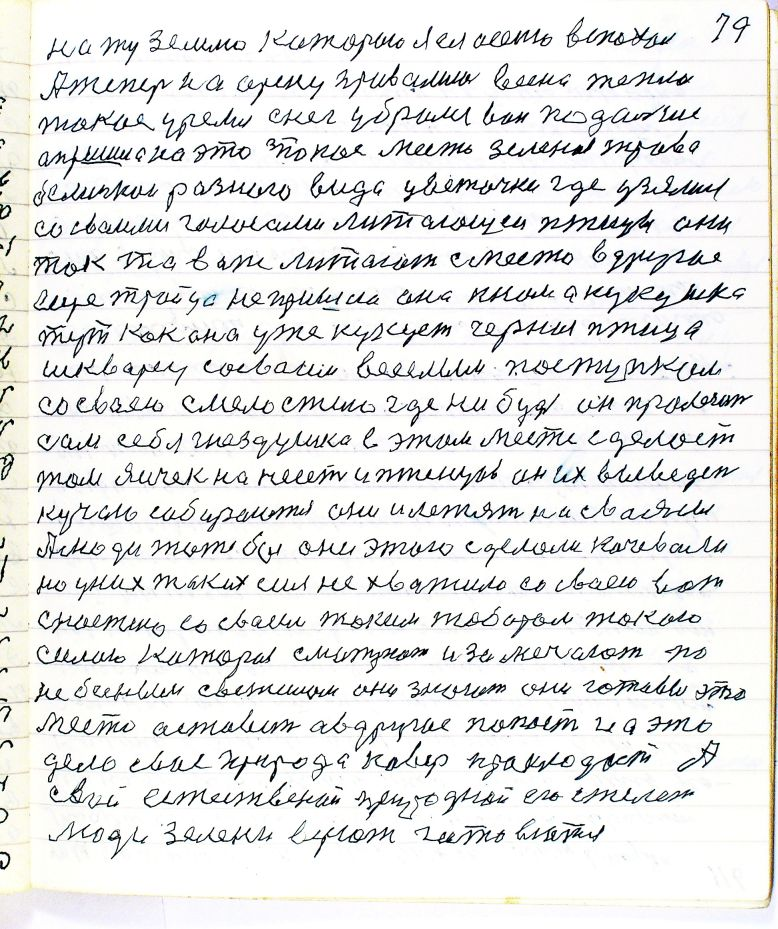 79
на ту землю каторою я ел осето вспохал
А тепер на арену привалила весна тепла
такое уреми снег убрали вон подальше
а пришла на это такое место зеления трава
беличкои разного вида цветочки где узялис
со сваими голосами литающеи птицы они
ток та в аж литагат с место в другое
еще тройца не пришла она кнома кукушка
тут как она уже кукует черния птица
шкварец сосваим веселым поступкам
со сваею смелостию где нибудь он пролочит
сам себя гнездушка в этом месте сделает
там яичек на несет и птенцов он их выведет
кучаю сабираются они и летят на сваяния
А люди тоже бы они этого сделали качевали
но у них таких сил не хватило со сваею вот
снастию со сваем таким таботам такою
силаю катория сматрют и замечают по
небесным светилам они знают они готовы это
место аставит а в другое попаст на это
дело свае природа ковер пракладает А
свой естественай природнай его стелет
люди зелени венок гатовятся